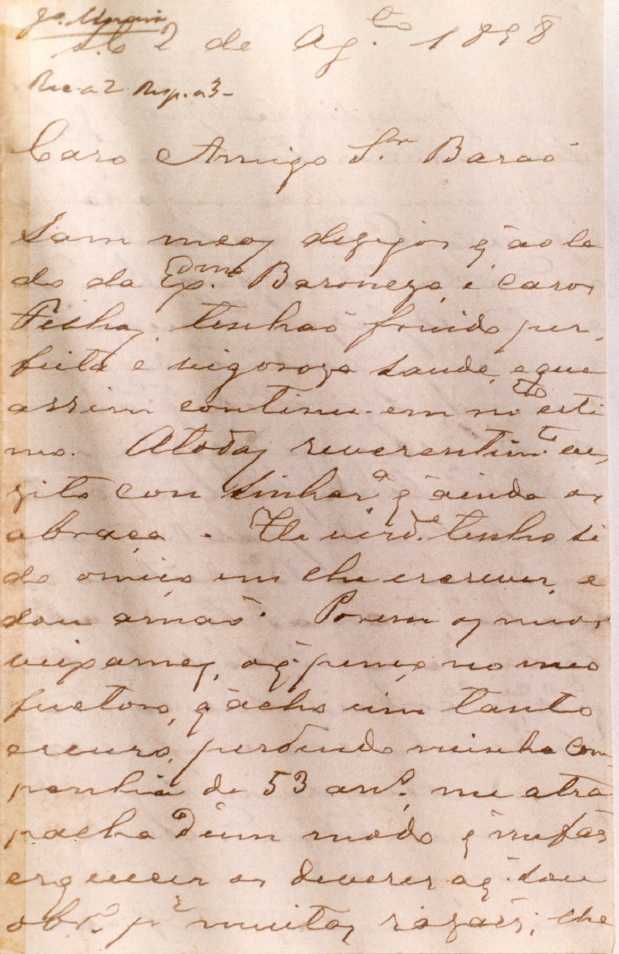 S.C. 2 de Ag.to 1898
Rec. a 2 Resp. a 3-
Caro Amigo Snr Baraõ
Sam meos dezejos q̃ ao la
do da Exma. Baroneza, e caros
Filhos, tenhaõ fruido per-
feita e vigoroza saude, e que
assim continu-em mto esti
mo. A todos reverentimte
zito con Sinhara q̃ ainda os
abraça. He verde tenho si
do omiço em lhe escrever, e
dou a maõ. Porem os meos
veixames, a q̃ penço no meo
fucturo, q̃ acho um tanto
escuro, perdendo minha com
panhia de 53 ans, me atra
pacha d'um modo q̃ me fás
esquecer os deveres a q̃ sou
obro. pr muitas razaõs; lhe